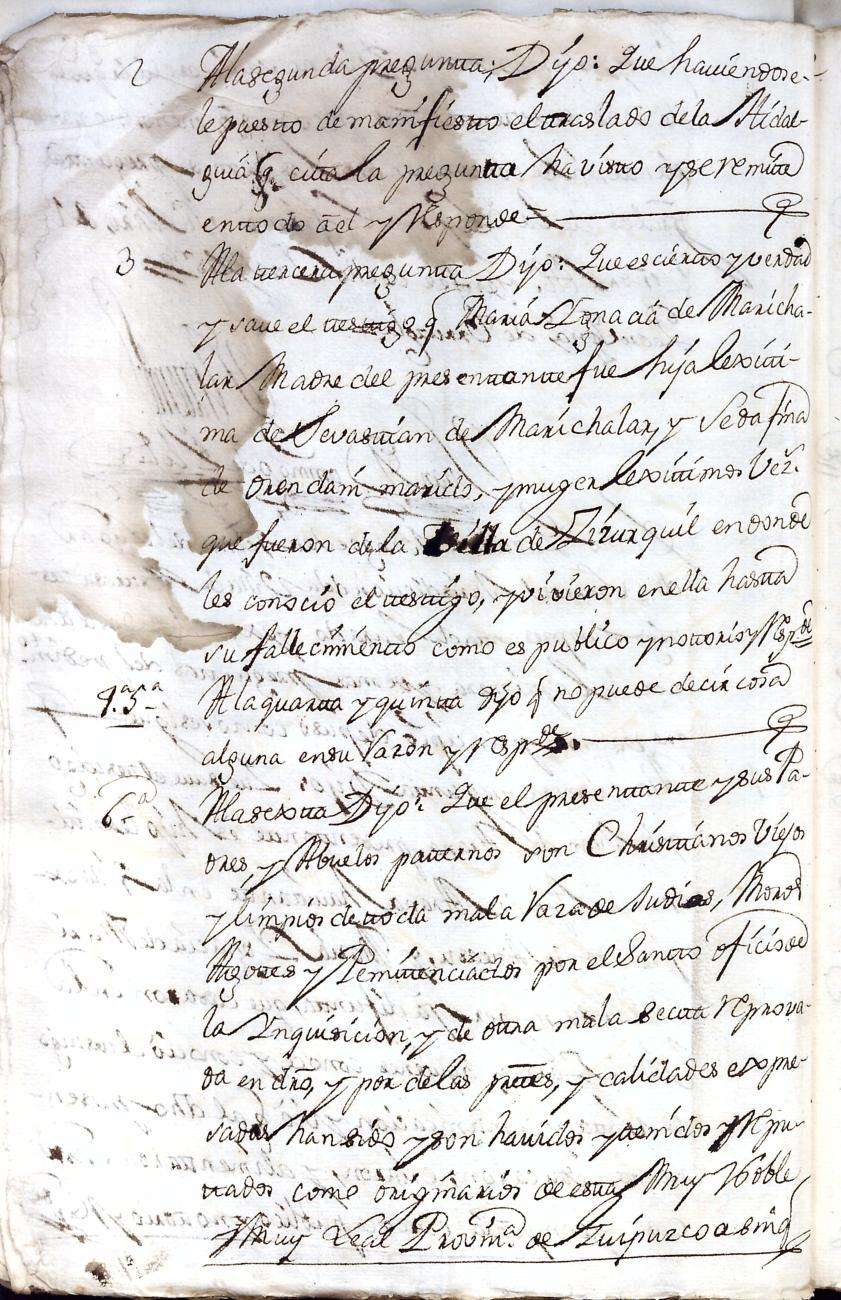 2 Ala segunda pregunta; Dijo: Que haviendose-
le puesto de manifiesto el traslado de la Hidal-
guia q. cita la pregunta ha visto y se remite
en todo a el y Responde=
3 = Ala tercera pregunta Dijo: Que es cierto y verdad
y save el testigo q Maria Ignacia de Maricha-
lar Madre del presentante fue hija lexiti-
ma de Sevastian de Marichalar, y Serafina
de Orendain marido, y muger lexitimos Vez.s
que fueron de la Villa de Zizurquil en donde
les conoció el testigo, y vivieron en ella hasta
su fallecimiento como es publico y notorio y Resp.de
4.a 5.a Ala quarta y quinta dijo q no puede decir cosa
alguna en su razon y resp.de
6.a Ala sexta Dijo: Que el presentante y sus Pa-
dres, y Abuelos paternos son Christianos Viejos
y limpios de toda mala raza de Judios, Moros
Agotes y Penitenciados por el Santo oficio de
la Inquisicion, y de otra mala secta reprova-
da en dro, y por de las partes, y calidades expre-
sadas han sido y son havidos y tenidos y Repu-
tados como originarios de esta Muy Noble
y Muy Leal Provin.a de Guipuzcoa sin q